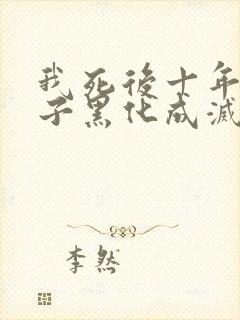 我死後十年
子黑化成滅
李然